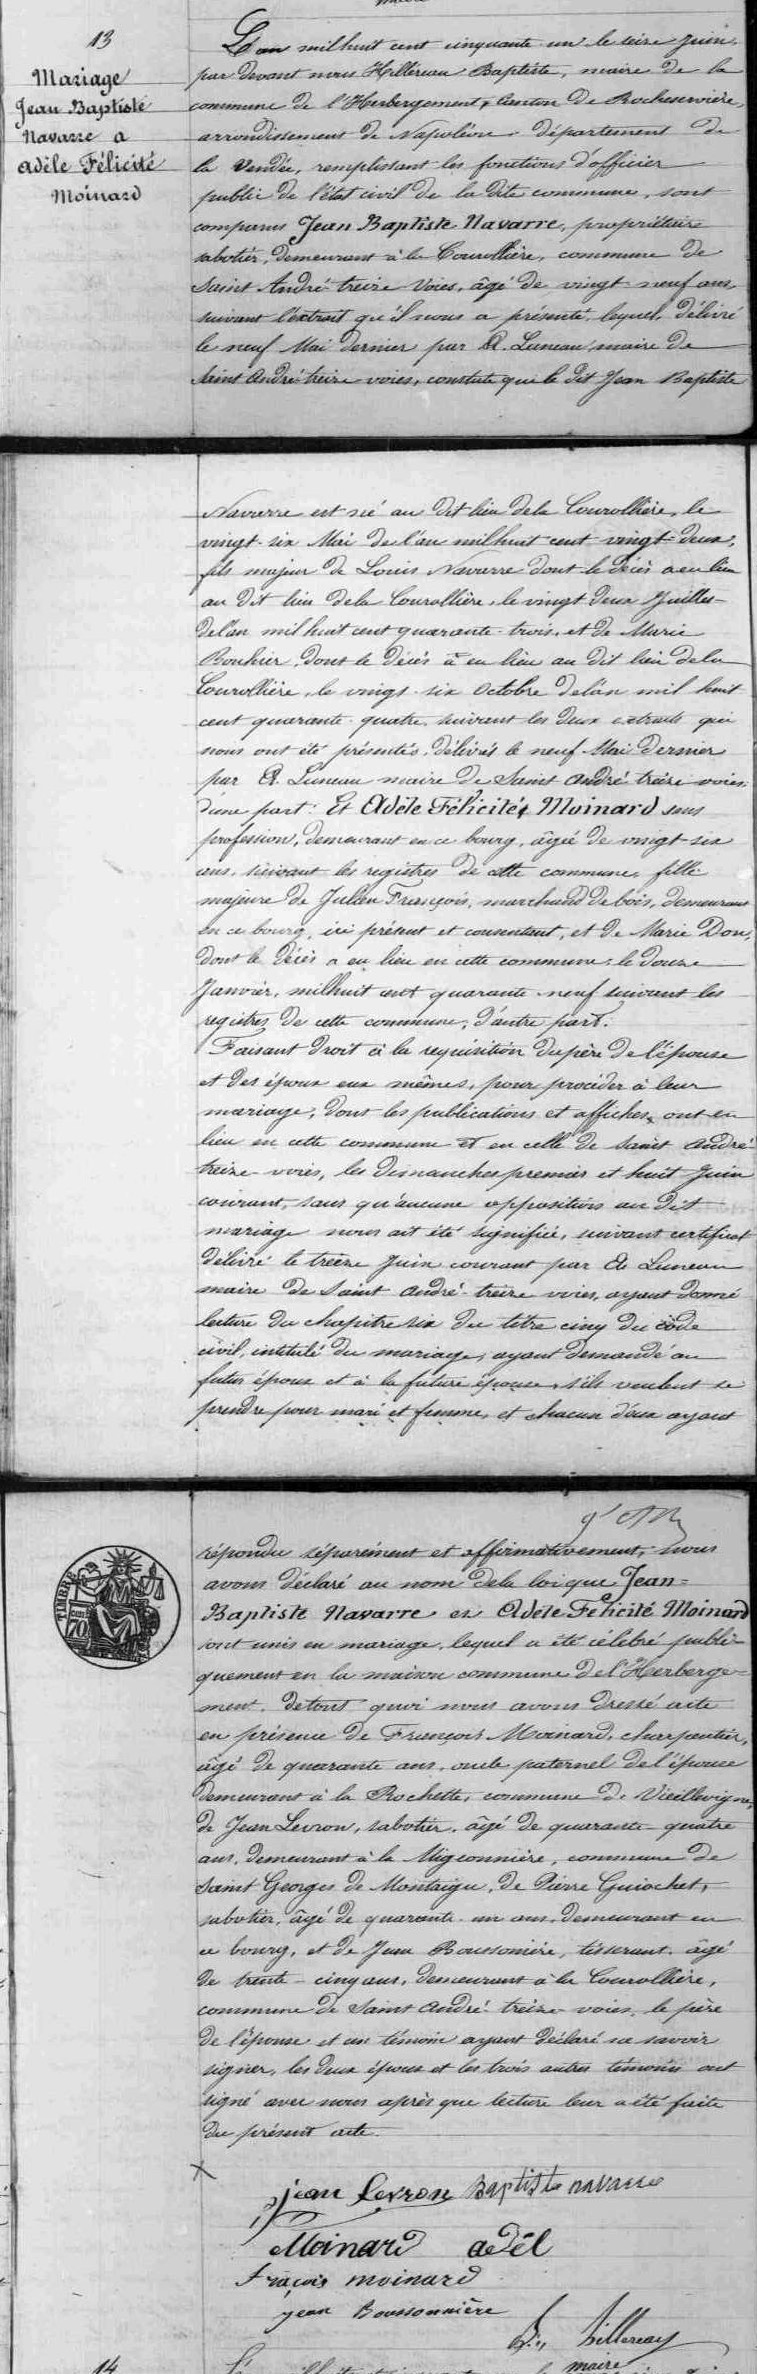 13
Mariage
Jean Baptiste
Navarre a
Adèle Félicité
Moinard
L'an mil huit cent cinquante un le seize Juin,
par devant nous Hillereau Baptiste, maire de la
commune de l'Herbergement, Canton de Rocheservière,
arrondissement de Napoléon, département de
la Vendée, remplissant les fonctions d'officier
public de l'état civil de la dite commune, sont
comparus Jean Baptiste Navarre, propriétaire
sabotier, demeurant à la Courollière, commune de
Saint André treize Voies, âgé de vingt neuf ans,
suivant l'extrait qu'il nous a présenté, lequel, délivré
le neuf Mai dernier par A. Luneau, maire de
Saint André treize voies, constate que le dit Jean Baptiste
Navarre est né au dit lieu de la Courollière, le
vingt-six Mai de l'an mil huit cent vingt-deux,
fils majeur de Louis Navarre dont le décès a eu lieu
au dit lieu de la Courollière, le vingt deux Juillet
de l'an mil huit cent quarante-trois, et de Marie
Bouhier, dont le décès à eu lieu au dit lieu de la
Courollière, le vingt-six Octobre de l'an mil huit
cent quarante-quatre, suivant les deux extraits qui
nous ont été présentés, délivrés le neuf Mai dernier
par A. Luneau maire de Saint André treize voies,
d'une part: Et Adèle Félicité Moinard sans
profession, demeurant en ce bourg, âgée de vingt-six
ans, suivant les registres de cette commune, fille
majeure de Julien François, marchand de bois, demeurant
en ce bourg, ici présent et consentant, et de Marie Don,
dont le décès a eu lieu en cette commune, le douze
Janvier, mil huit cent quarante-neuf suivant les
registres de cette commune, d'autre part.
Faisant droit à la requisition du père de l'épouse
et des époux eux mêmes, pour procéder à leur
mariage, dont les publications et affiches, ont eu
lieu en cette commune et en celle de Saint André
treize-voies, les dimanches premier et huit Juin
courant, sans qu'aucune opposition au dit
mariage nous ait été signifiée, suivant certificat
délivré le treize Juin courant par A. Luneau
maire de Saint André-treize voies, ayant donné
lecture du chapitre six du titre cinq du code
civil, intitulé du mariage, ayant demandé au
futur époux et à la future épouse, s'ils veulent se
prendre pour mari et femme, et chacun d'eux ayant
TIMBRE
70
répondu séparément et affirmativement, nous
avons déclaré au nom de la loi que Jean=
Baptiste Navarre et Adèle Félicité Moinard
sont unis en mariage, lequel a été célébré publi-
quement en la maison commune de l'Herberge=
ment. de tout quoi nous avons dressé acte
en présence de François Moinard, charpentier,
âgé de quarante ans, oncle paternel de l'épouse
demeurant à la Rochette, commune de Vieillevigne,
de Jean Levron, sabotier, âgé de quarante-quatre
ans, demeurant à la Migeonnière, commune de
Saint Georges de Montaigu, de Pierre Guiochet,
sabotier, âgé de quarante-un ans, demeurant en
ce bourg, et de Jean Boussonière, tisserant, âgé
de trente-cinq ans, demeurant à la Courollière,
commune de Saint André-treize-voies, le père
de l'épouse et un témoin ayant déclaré ne savoir
signer, les deux époux et les trois autres témoins ont
signé avec nous après que lecture leur a été faite
du présent acte.
jean Levron Baptiste navarre
Moinard adèl
François moinard
jean Boussonnière
Bte hillereau
maire
14